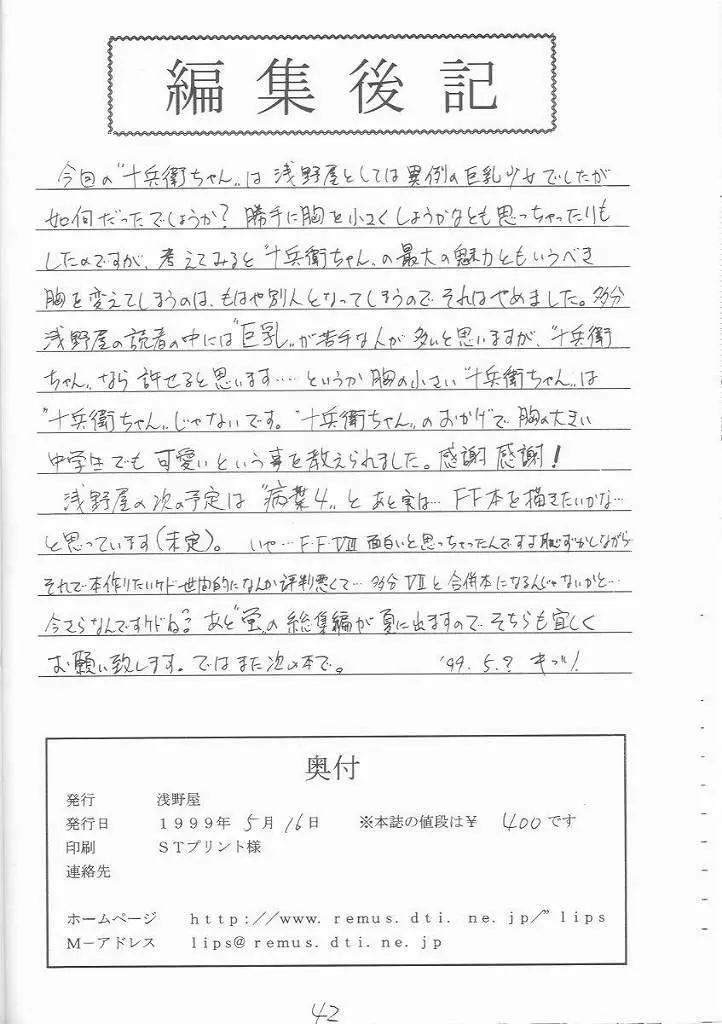 編集後記
今回の〝十兵衛ちゃん〟は浅野屋としては異例の巨乳少女でしたが
如何だったでしょうか？勝手に胸を小さくしようかなとも思っちゃったりも
したのですが、考えてみると〝十兵衛ちゃん〟の最大の魅力ともいうべき
胸を変えてしまうのは、もはや別人となってしまうのでそれはやめました。多分
浅野屋の読者の中には〝巨乳〟が苦手な人が多いと思いますが、〝十兵衛
ちゃん〟なら許せると思います‥‥というか胸の小さい〝十兵衛ちゃん〟は
〝十兵衛ちゃん〟じゃないです。〝十兵衛ちゃん〟のおかげで胸の大きい
中学生でも可愛いという事を教えられました。感謝感謝！
浅野屋の次の予定は〝病葉4〟とあと実は…FF本を描きたいかな…
と思っています(未定)。いや…F・F・VIII面白いと思っちゃったんですよ恥ずかしながら
それで本作りたいケド世間的になんか評判悪くて…多分VIIと合併本になるんじゃないかと…
今さらなんですケドね？あと〝蛍〟の総集編が夏に出ますのでそちらも宜しく
お願い致します。ではまた次の本で。 '99.5.?
奥付
発行 浅野屋
発行日 １９９９年 5月 16日 ※本誌の値段は￥ 400です
印刷 ＳＴプリント様
連絡先
ホームページ http://www.remus.dti.ne.jp/~lips
Ｍ－アドレス lips@remus.dti.ne.jp
42